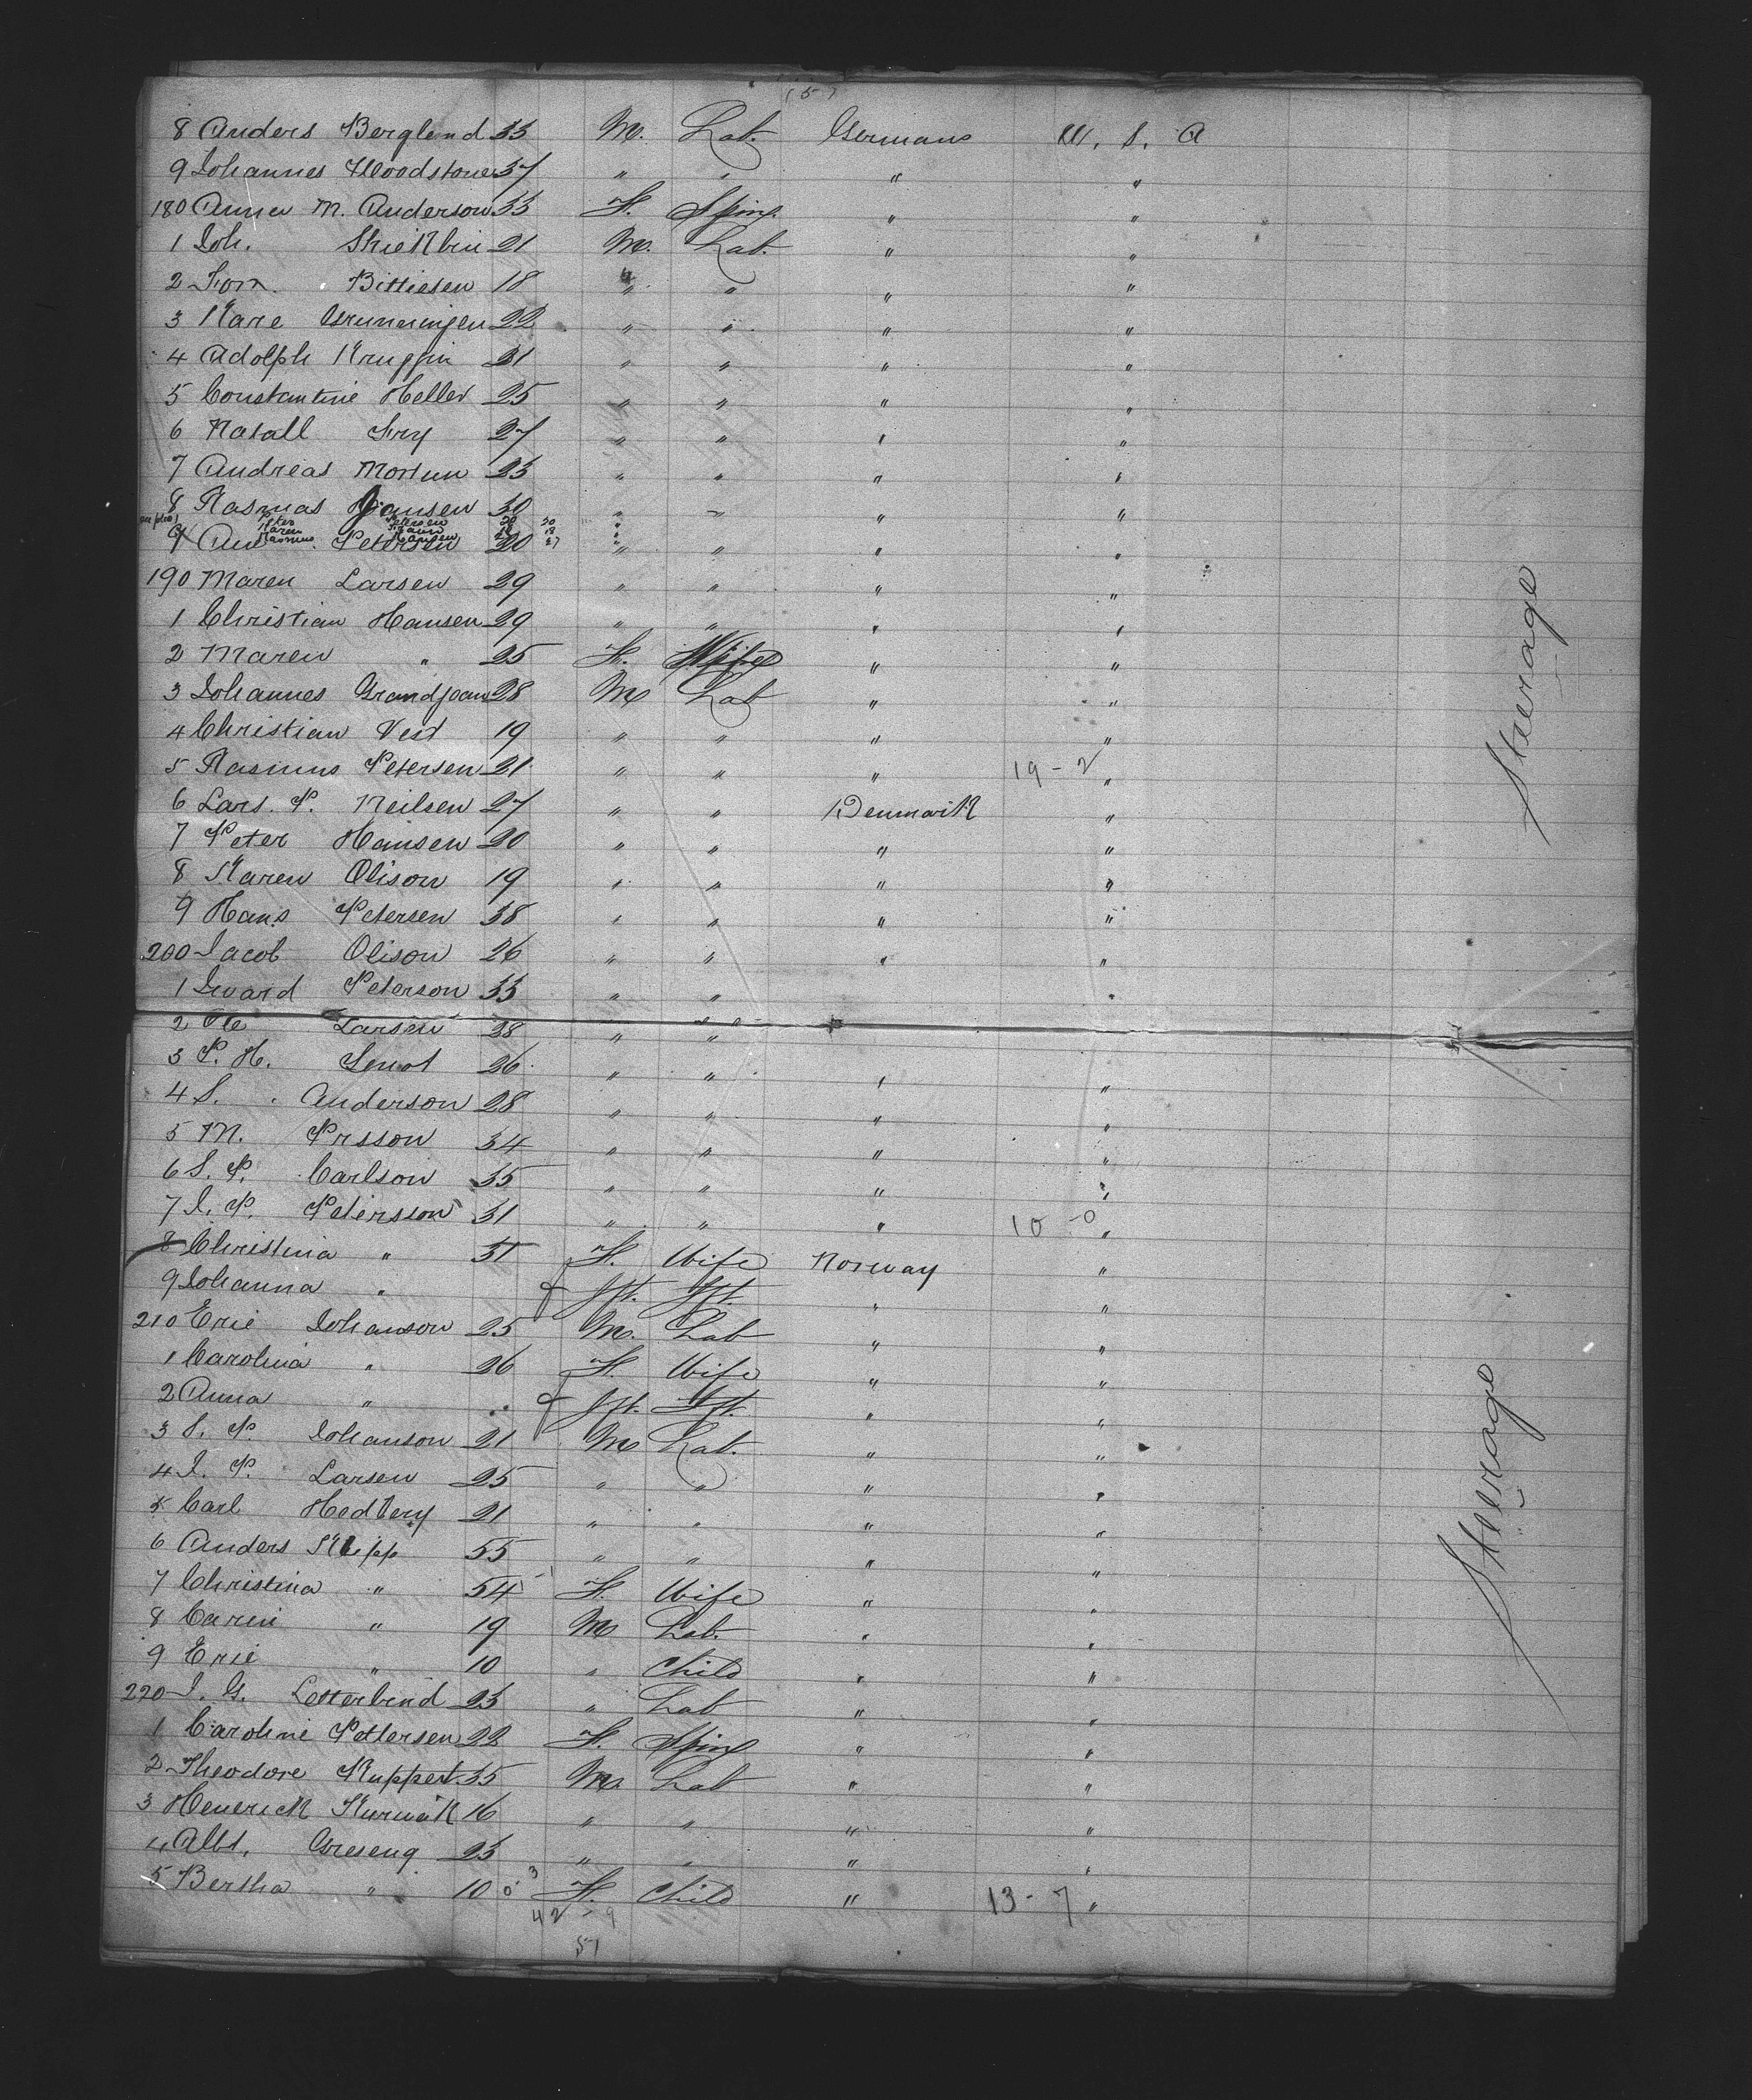 (5)
8 Anders Berglend 33 M. Lab. Germans U. S. A
9 Johannes Woodstone 37 " " " "
180 Anna M. Anderson 33 F. Spins. " "
1 Joh. 21 M. Lab. " "
2 Bittiesen 18 " " " "
3 Kare Grunningen 22 " " " "
4 Adolph Kruffin 31 " " " "
5 Constantine Heller 25 " " " "
6 Natall Frey 27 " " " "
7 Andreas Mortun 23 " " " "
8 Rasmas Jansen 30 " " " "
Peter Petersen 20 30
Karen 18 18
Rasmus Hansen 27
9 Petersen 20 " " " "
190 Maren Larsen 29 " " " "
1 Christian Hansen 29 " " " "
2 Maren " 25 F. Wife " "
3 Johannes Grandjean 28 M Lab " "
4 Christian Vest 19 " " " "
5 Rasmus Petersen 21 " " " 19-2 "
6 Lars. P. Neilsen 27 " " Denmark "
7 Peter Hansen 20 " " " "
8 Karen Olison 19 " " " "
9 Hans Petersen 38 " " " "
200 Jacob Olison 26 " " " "
1 Peterson 33 " " "
2 Ole Larsen 38 " "
3 P. H. 26 " " " "
4 S. Anderson 28 " " " "
5 M. Prsson 34 " " " "
6 S. P. Carlson 35 " " " "
7 J. P. Petersson 31 " " " 10-0 "
8 Christina " 31 F. Wife Norway "
9 Johanna " Ift. Ift. " "
210 Eric Johanson 25 M. Lab " "
1 Carolina " 26 F. Wife " "
2 Anna " Ift. Ift. " "
3 S. P. Johanson 21 M Lab. " "
4 J. P. Larsen 25 " " " "
5 Carl Hedberg 21 " " " "
6 Anders Kipp 55 " " " "
7 Christina " 54 F. Wife " "
8 Carin " 19 M Lab. " "
9 Eric " 10 " Child " "
220 J. G. Letterbind 23 " Lab " "
1 Caroline Pettersen 22 F. Spins " "
2 Theodore Ruppert 35 M. Lab " "
3 Henerick 16 " " " "
4 Albt. Greseng 23 " " " "
5 Bertha " 10 F. Child " 13-7 "
42-9
51
Steerage
Steerage